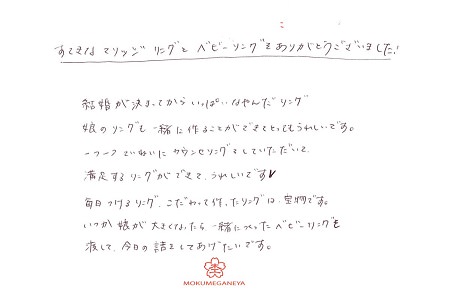 すてきなマリッジリングとベビーリングをありがとうございました!
結婚が決まってからいっぱいなやんだリング
娘のリングも一緒に作ることができてとってもうれしいです。
一つ一つていねいにカウンセリングをしていただいて、
満足するリングができて、うれしいです♥
毎日つけるリング、こだわって作ったリングは、宝物です。
いつか娘が大きくなったら、一緒につくったベビーリングを
渡して、今日の話をしてあげたいです。
MOKUMEGANEYA